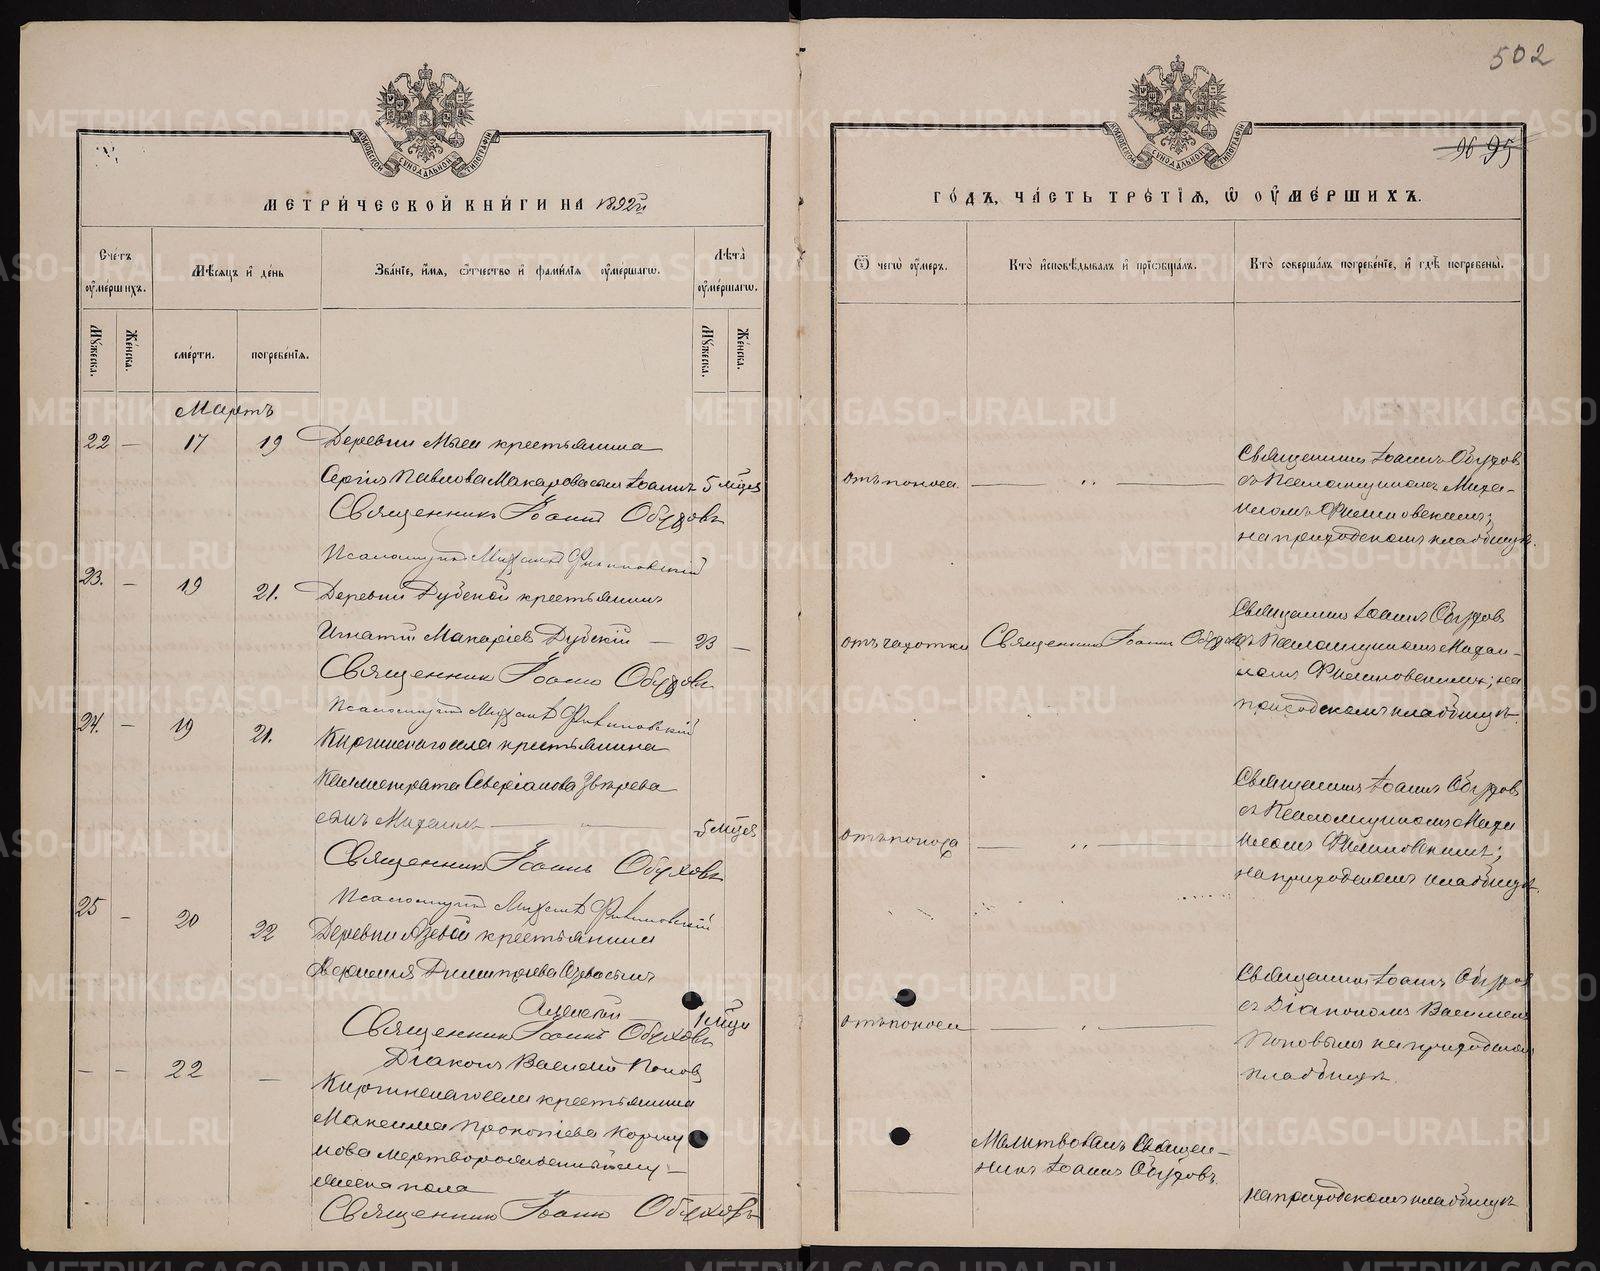 502
96 95
МЕТРИ́ЧЕСКОЙ КНИ́ГИ НА 1892й
ГО́ДЪ, ЧА́СТЬ ТРЕ́ТІЯ, Ѡ ОУ҆МЕ́РШИХЪ.
Сче́тъ оу҆ме́ршихъ.
Мѣ́сяцъ и҆ де́нь
Зва́ніе, и҆́мя, ѻ҆́тчество и҆ фами́лія оу҆ме́ршагѡ.
Лѣ́та оу҆ме́ршагѡ.
Мꙋ́жеска.
Же́нска.
сме́рти.
погребе́нія.
Мꙋ́жеска.
Же́нска.
Ѿ чегѡ̀ оу҆́меръ.
Кто̀ и҆сповѣ́дывалъ и҆ прїѡбща́лъ.
Кто̀ соверша́лъ погребе́ніе, и҆ гдѣ̀ погребены̀.
Мартъ
22 — 17 19 Деревни Мыса крестьянина
Сергія Павлова Макарова сынъ Іоаннъ 5 мѣся
Священникъ Іоаннъ Обуховъ
Псаломщикъ Михаилъ Филиновскій
отъ поноса — „ —
Священникъ Іоаннъ Обухов
съ Псаломщикомъ Миха-
иломъ Филиновскимъ;
на приходскомъ кладбищѣ.
23. — 19 21. Деревни Дубской крестьянинъ
Игнатій Макаріевъ Дубскій — 23 —
Священникъ Іоаннъ Обуховъ
Псаломщикъ Михаилъ Филиновскій
отъ чахотки Священникъ Іоаннъ Обухов
Священникъ Іоаннъ Обухов
съ Псаломщикомъ Михаи-
ломъ Филиновскимъ; на
приходскомъ кладбищѣ.
24. — 19 21. Киргишенскаго села крестьянина
Каллистрата Северіанова Звѣрева
сынъ Михаилъ — 5 мѣся
Священникъ Іоаннъ Обуховъ
Псаломщикъ Михаилъ Филиновскій
отъ поноса — „ —
Священникъ Іоаннъ Обухов
съ Псаломщикомъ Миха
иломъ Филиновскимъ;
на приходскомъ кладбищѣ.
25 — 20 22 Деревни Азевой крестьянина
Димитріева Азева сынъ
Алексѣй — 1 мѣся
Священникъ Іоаннъ Обуховъ
Діаконъ Василій Попов
отъ поноса — „ —
Священникъ Іоаннъ Обухов
съ Діакономъ Василіем
Поповымъ на приходском
кладбищѣ.
— — 22 —
села крестьянина
Максима Прокопіева Коршу
нова мертворожденный му-
жеска пола
Священникъ Іоаннъ Обуховъ
Молитвовалъ Священ-
никъ Іоаннъ Обуховъ.
на приходскомъ кладбищѣ